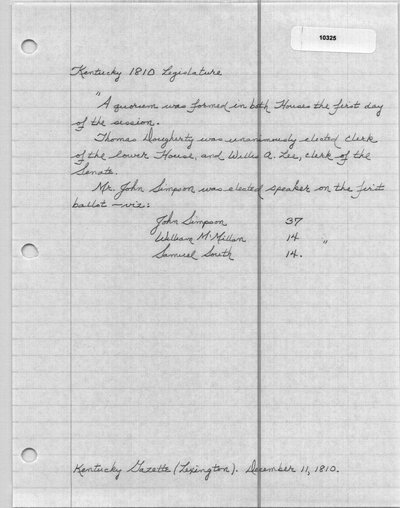 10325
Kentucky 1810 Legislature
"A quorum was formed in both Houses the first day
of the session.
Thomas Dougherty was unanimously elected clerk
of the lower House, and Willis A. Lee, clerk of the
Senate.
Mr. John Simpson was elected speaker on the first
ballot — viz:
John Simpson 37
William McMillan 14 "
Samuel South 14.
Kentucky Gazette (Lexington). December 11, 1810.